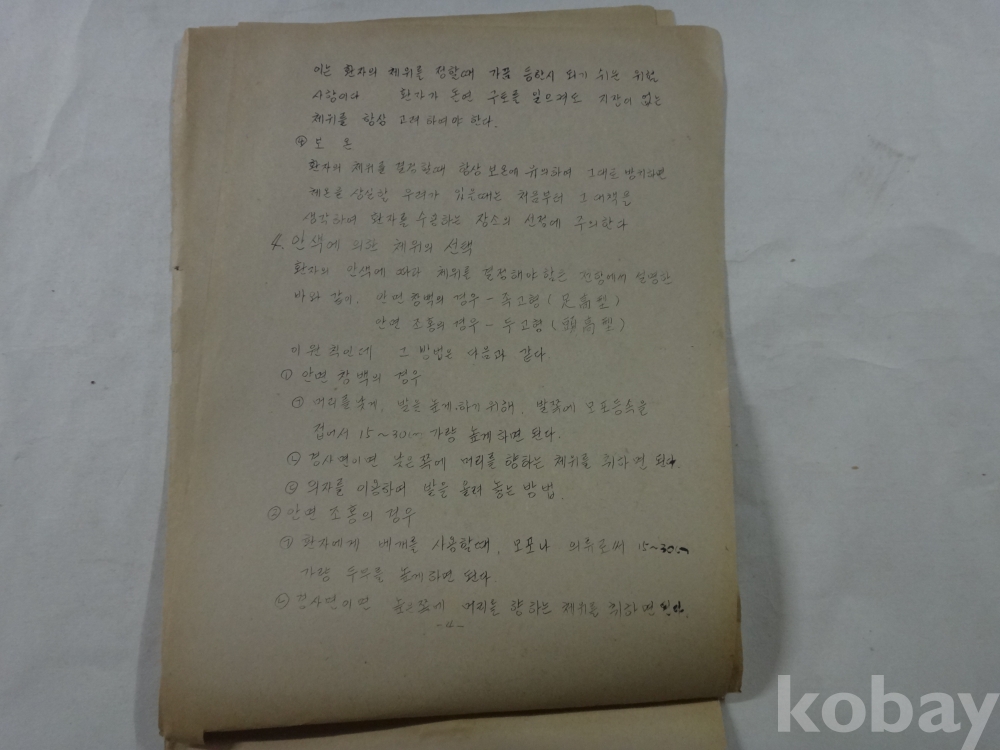 이는 환자의 체위를 정할때 가끔 등한시 되기 쉬운 위험
사항이다 환자가 돌연 구토를 일으켜도 지장이 없는
체위를 항상 고려하여야 한다.
㉣ 보 온
환자의 체위를 결정할때 항상 보온에 유의하여 그대로 방치하면
체온을 상실할 우려가 있을때는 처음부터 그 대책을
생각하여 환자를 수용하는 장소의 선정에 주의한다
4. 안색에 의한 체위의 선택
환자의 안색에 따라 체위를 결정해야 함은 전항에서 설명한
바와 같이, 안면 창백의 경우 - 족고형 (足高型)
안면 조홍의 경우 - 두고형 (頭高型)
이 원칙인데 그 방법은 다음과 같다
① 안면 창백의 경우
㉠ 머리를 낮게, 발을 높게 하기 위해, 발쪽에 모포등속을
접어서 15~30㎝ 가량 높게 하면 된다.
㉡ 경사면이면 낮은 쪽에 머리를 향하는 체위를 취하면 된다.
㉢ 의자를 이용하여 발을 올려 놓는 방법.
② 안면 조홍의 경우
㉠ 환자에게 베개를 사용할때, 모포나 의류로써 15~30㎝
가량 두부를 높게 하면 된다
㉡ 경사면이면 높은 쪽에 머리를 향하는 체위를 취하면 된다.
-4-
kobay